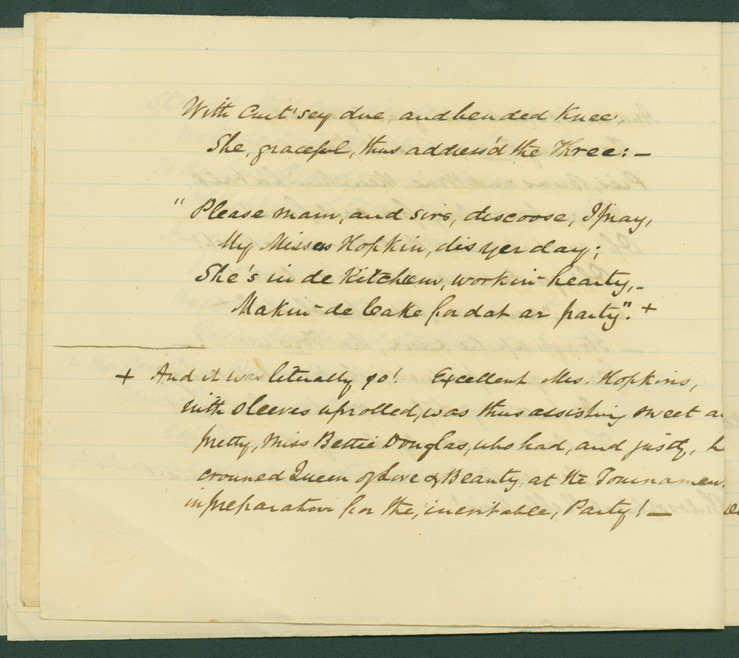 With Curt'sey due, and bended Knee,
She, graceful, thus address'd the Three: —
"Please mam, and sirs, discoose, I pray,
My Misses Hopkin, dis yer day;
She's in de Kitchen, workin' hearty, —
Makin' de Cake for dat ar party". +
+ And it was literally so! Excellent Mrs. Hopkins,
with sleeves uprolled, was thus assisting sweet a
pretty, Miss Bettie Douglas, who had, and justly, b
crowned Queen of Love & Beauty, at the Tournamen
in preparation for the, inevitable, Party! —